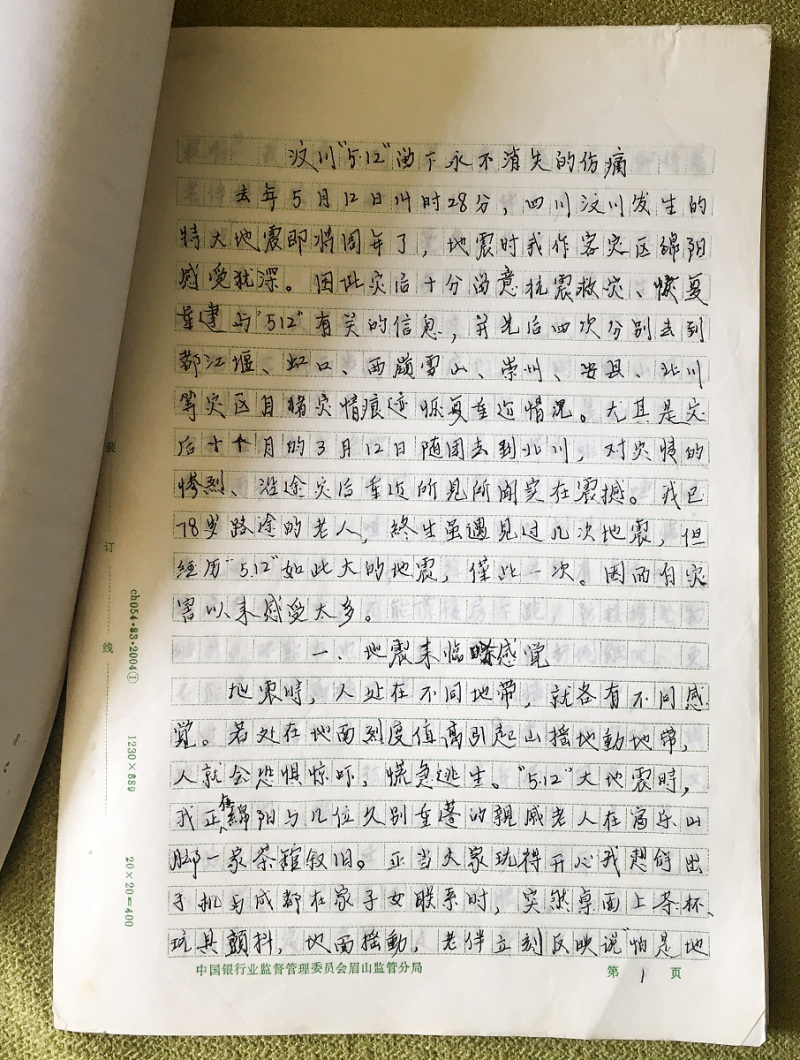 汶川"5.12"留下永不消失的伤痛
去年5月12日14时28分，四川汶川发生的
特大地震即将周年了，地震时我作客灾区绵阳
感受犹深。因此灾后十分留意抗震救灾、恢复
重建与"512"有关的信息，并先后四次分别去到
都江堰、虹口、西嶺雪山、崇州、安县、北川
等灾区目睹灾情痕迹恢复重建情况。尤其是灾
后十个月的3月12日随团去到北川，对灾情的
惨烈、沿途灾后重建所见所闻实在震撼。我已
78岁路途的老人，终生虽遇见过几次地震，但
经历"5.12"如此大的地震，僅此一次。因而自灾
害以来感受太多。
一、地震来临感觉
地震時，人处在不同地带，就各有不同感
覚。若处在地面刻度值高引起山摇地動地带，
人就会恐惧惊吓，慌急逃生。"5.12"大地震時，
我正在綿阳与几位久别重逢的親戚老人在富乐山
脚一家茶馆叙旧。正当大家玩得开心我想掏出
手机与成都在家子女联系时，突然桌面上茶杯、
玩具顫抖，地面摇動，老伴立刻反映说"怕是地
中国银行业监督管理委员会眉山监管分局
第 1 页
装
订
线
ch054·83·2004①
1230×889
20×20=400